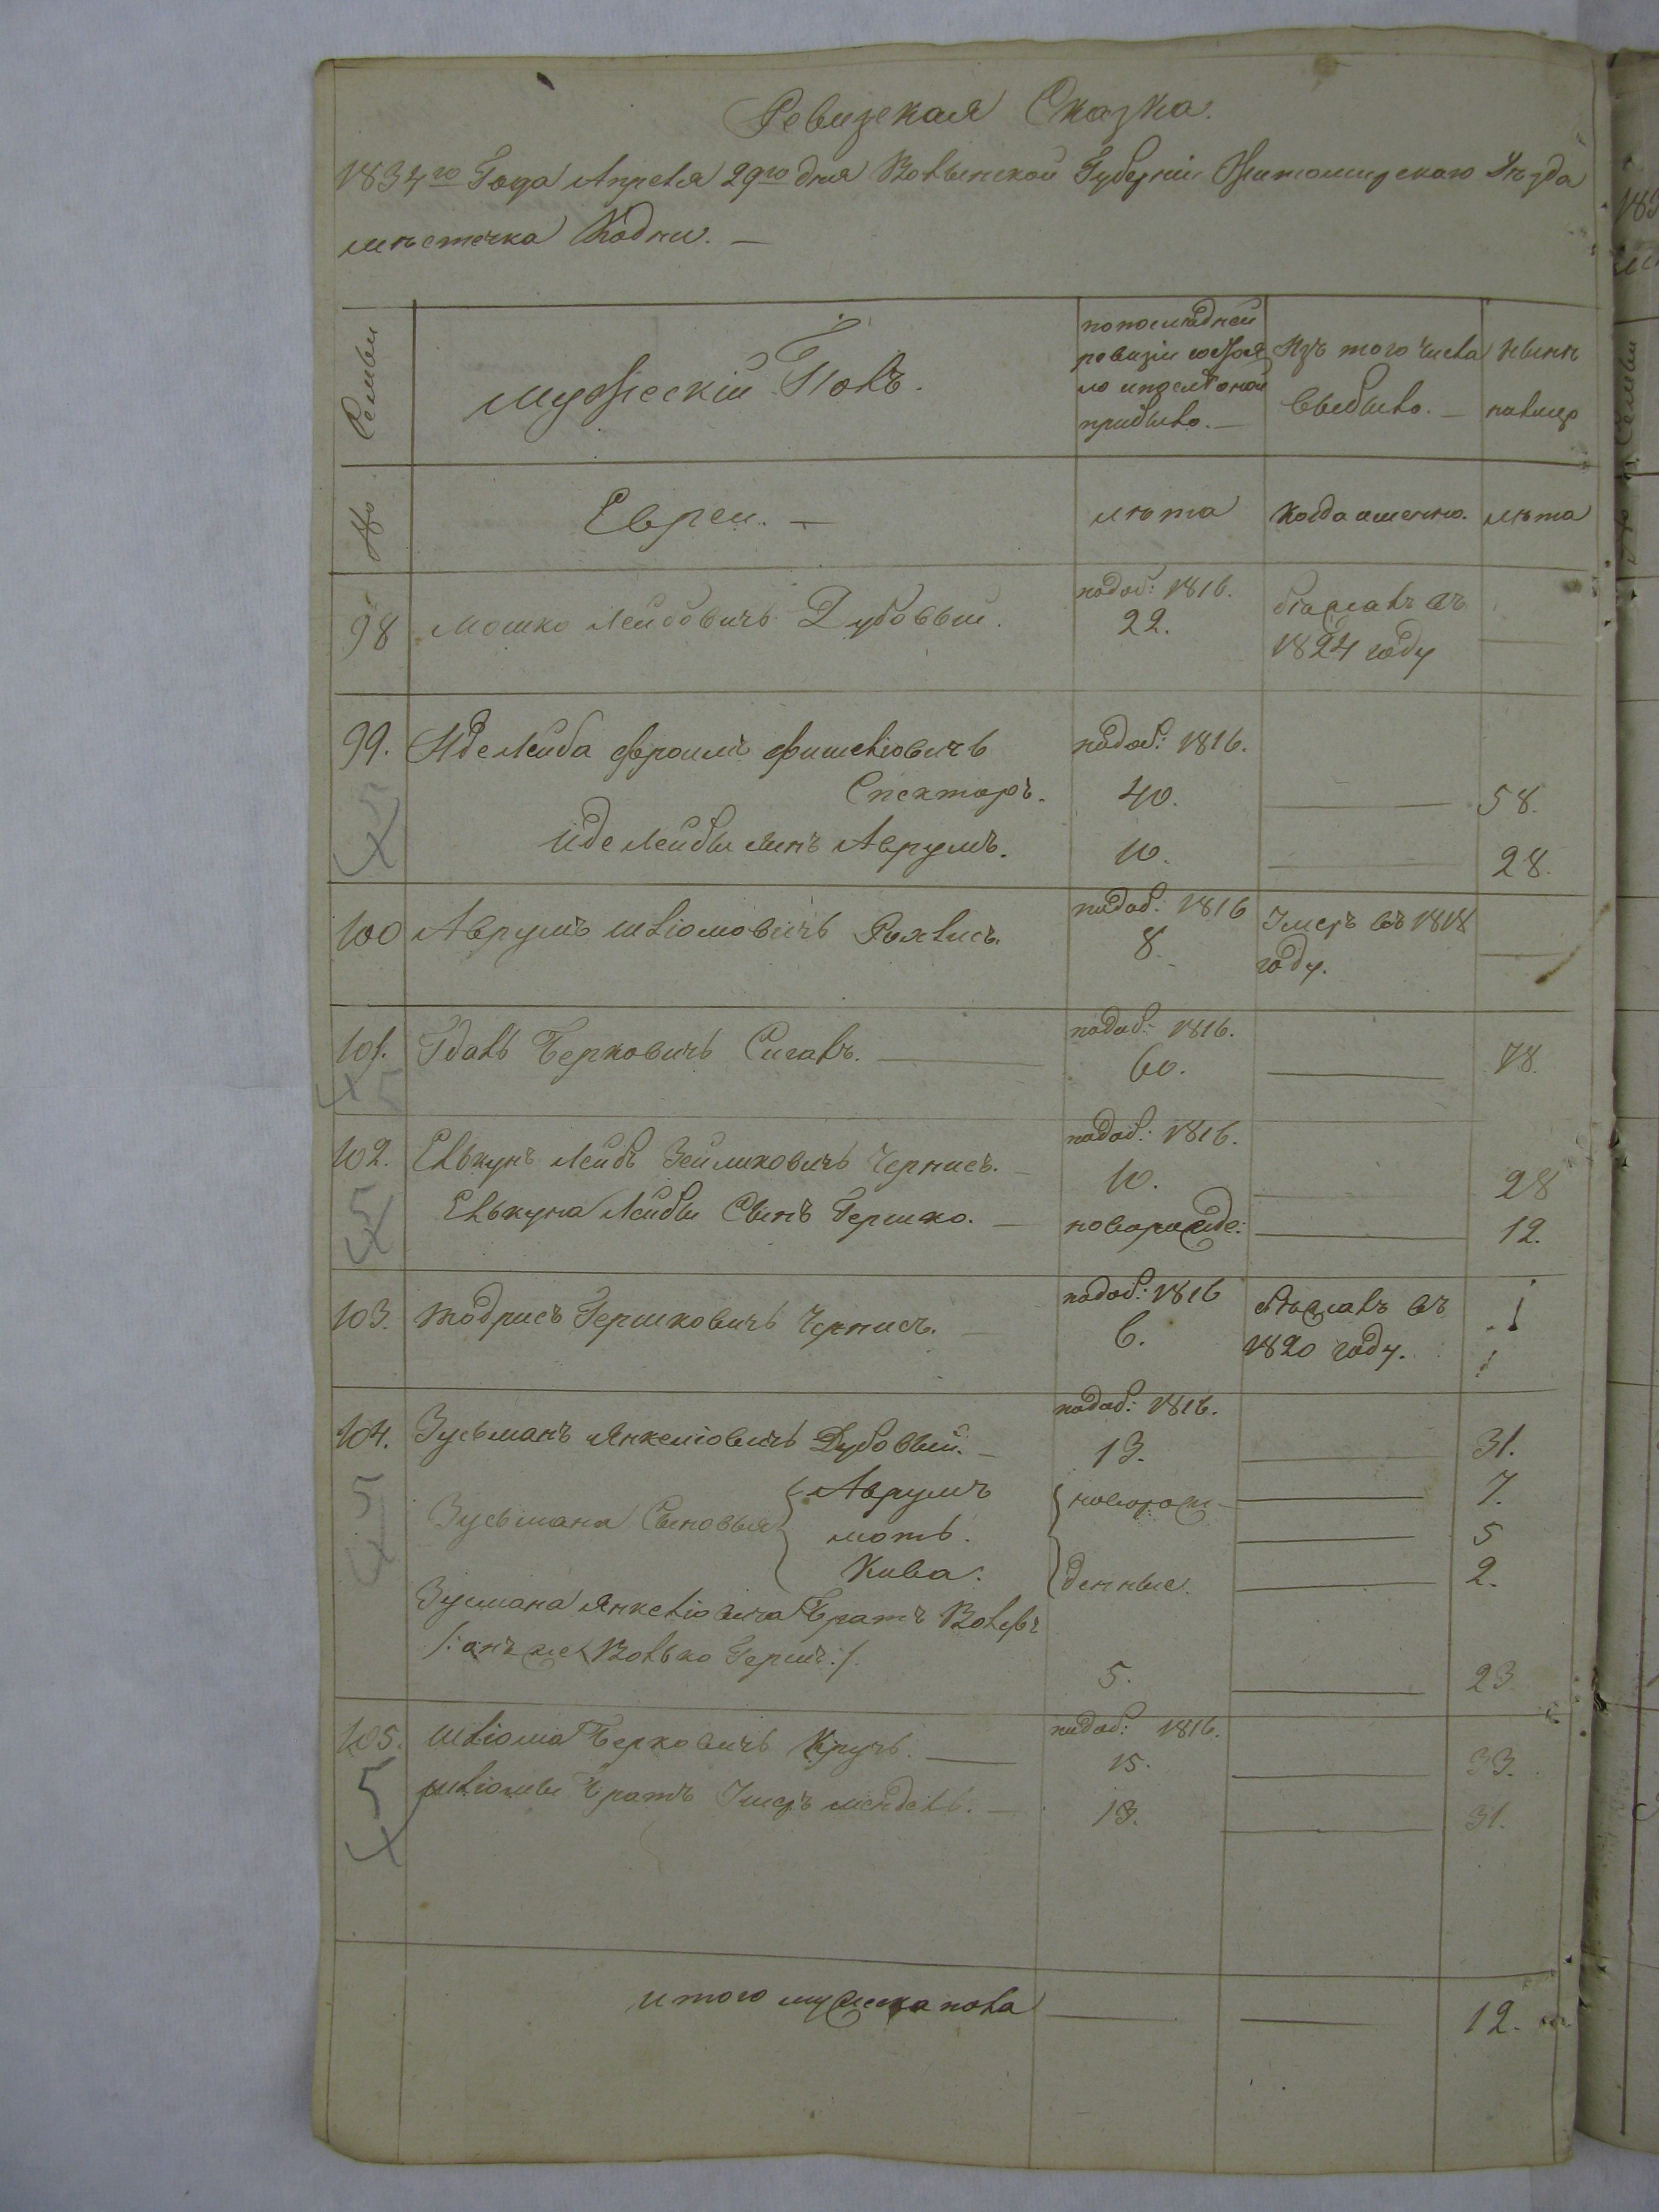 Ревизская Сказка.
1834го Года Апреля 29го дня Волынской Губерніи Житомирскаго Уѣзда
мѣстечка Кодни. —
№ Семьи
мужескій Полъ.
по последней
ревизіи состоя
ло и после оной
прибыло. —
Изъ того числа
выбыло. —
нынѣ
налицо
Евреи. —
лѣта
когда именно.
лѣта
98 Мошко Лейбовичь Дубовый.
подоп: 1816.
22.
бѣжалъ въ
1824 году
99. Иде Лейба Фроимъ Фишеліовичь
Спекторъ.
подоп: 1816.
40. — 58.
Иде Лейбы сынъ Аврумъ. 10. — 28.
100 Аврумъ Шліомовичь
подоп: 1816
8.
Умеръ въ 1818
году.
101. Гдаль Берковичь Сигалъ. —
подоп: 1816.
60. — 78.
102. Елькунъ Лейбъ Зейликовичь Чернисъ. —
подоп: 1816.
10. — 28
Елькуна Лейбы Сынъ Гершко. — новорожде: — 12.
103. Тодрисъ Гершковичь Чернисъ. —
подоп: 1816
6.
бѣжалъ въ
1820 году.
104. Зусьманъ Янкеліовичь Дубовый. —
подоп: 1816.
13. — 31.
Зусьмана Сыновья
Аврумъ новорож — 7.
моть. — 5
Кива. денные. — 2.
Зусмана Янкеліовича Братъ Вольфъ
/: онъ же Волько Гершъ :/
5. — 23
105. Шліома Берковичь Кручь. —
подоп: 1816.
15. — 33.
Шліомы Братъ мендель. — 13. — 31.
итого мужеска пола — — 12.
5
5
5
5
5